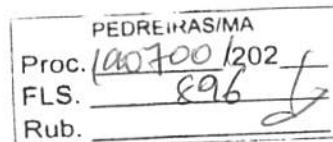 PEDREIRAS/MA
Proc. /202
FLS. 896
Rub.